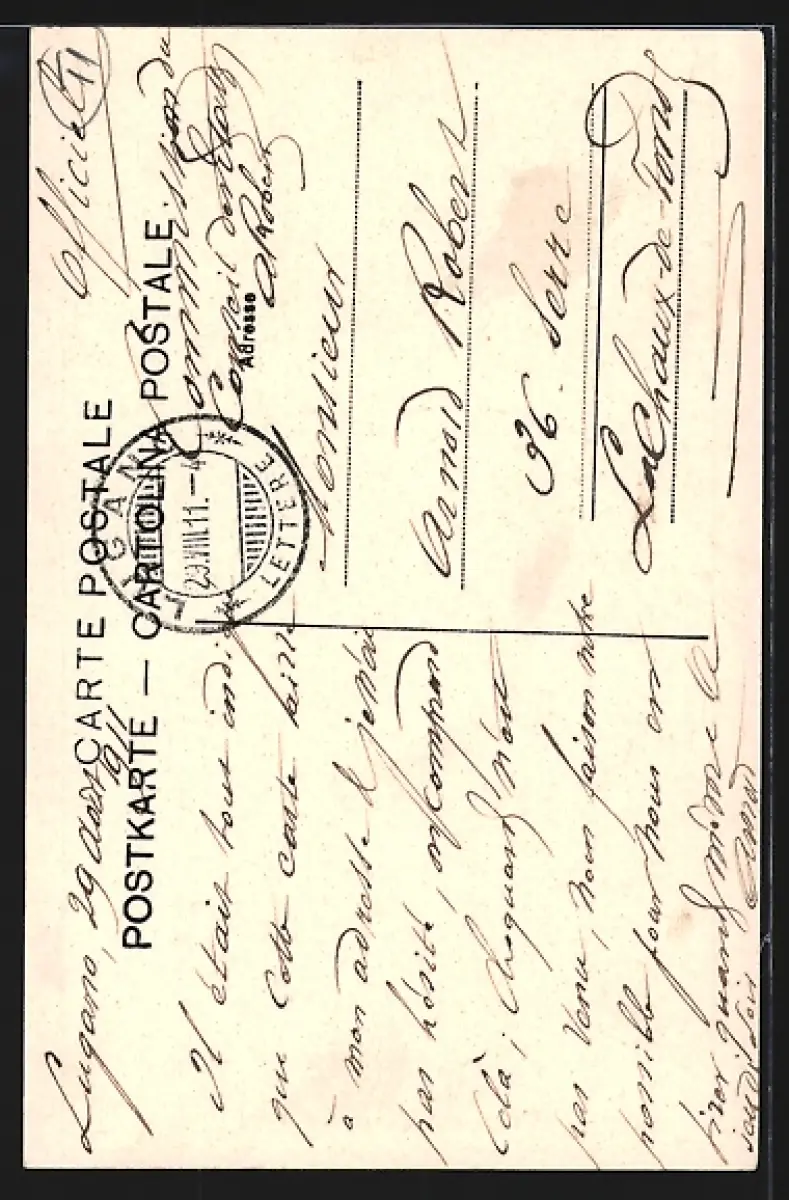 Officiel 11
CARTE POSTALE
POSTKARTE — CARTOLINA POSTALE
Lugano, 29 Août 1911
Commission du
Conseil
A Robert
Adresse
LUGANO
29.VIII.11.—4
LETTERE
Monsieur
Arnold Robert
36. Serre
La Chaux-de-Fonds
Il était tout indi
que cette carte
à mon adresse & je n'ai
pas hésité, on comprend
Celà;
pas venu, nous faisons notre
possible pour nous en
tirer quand même